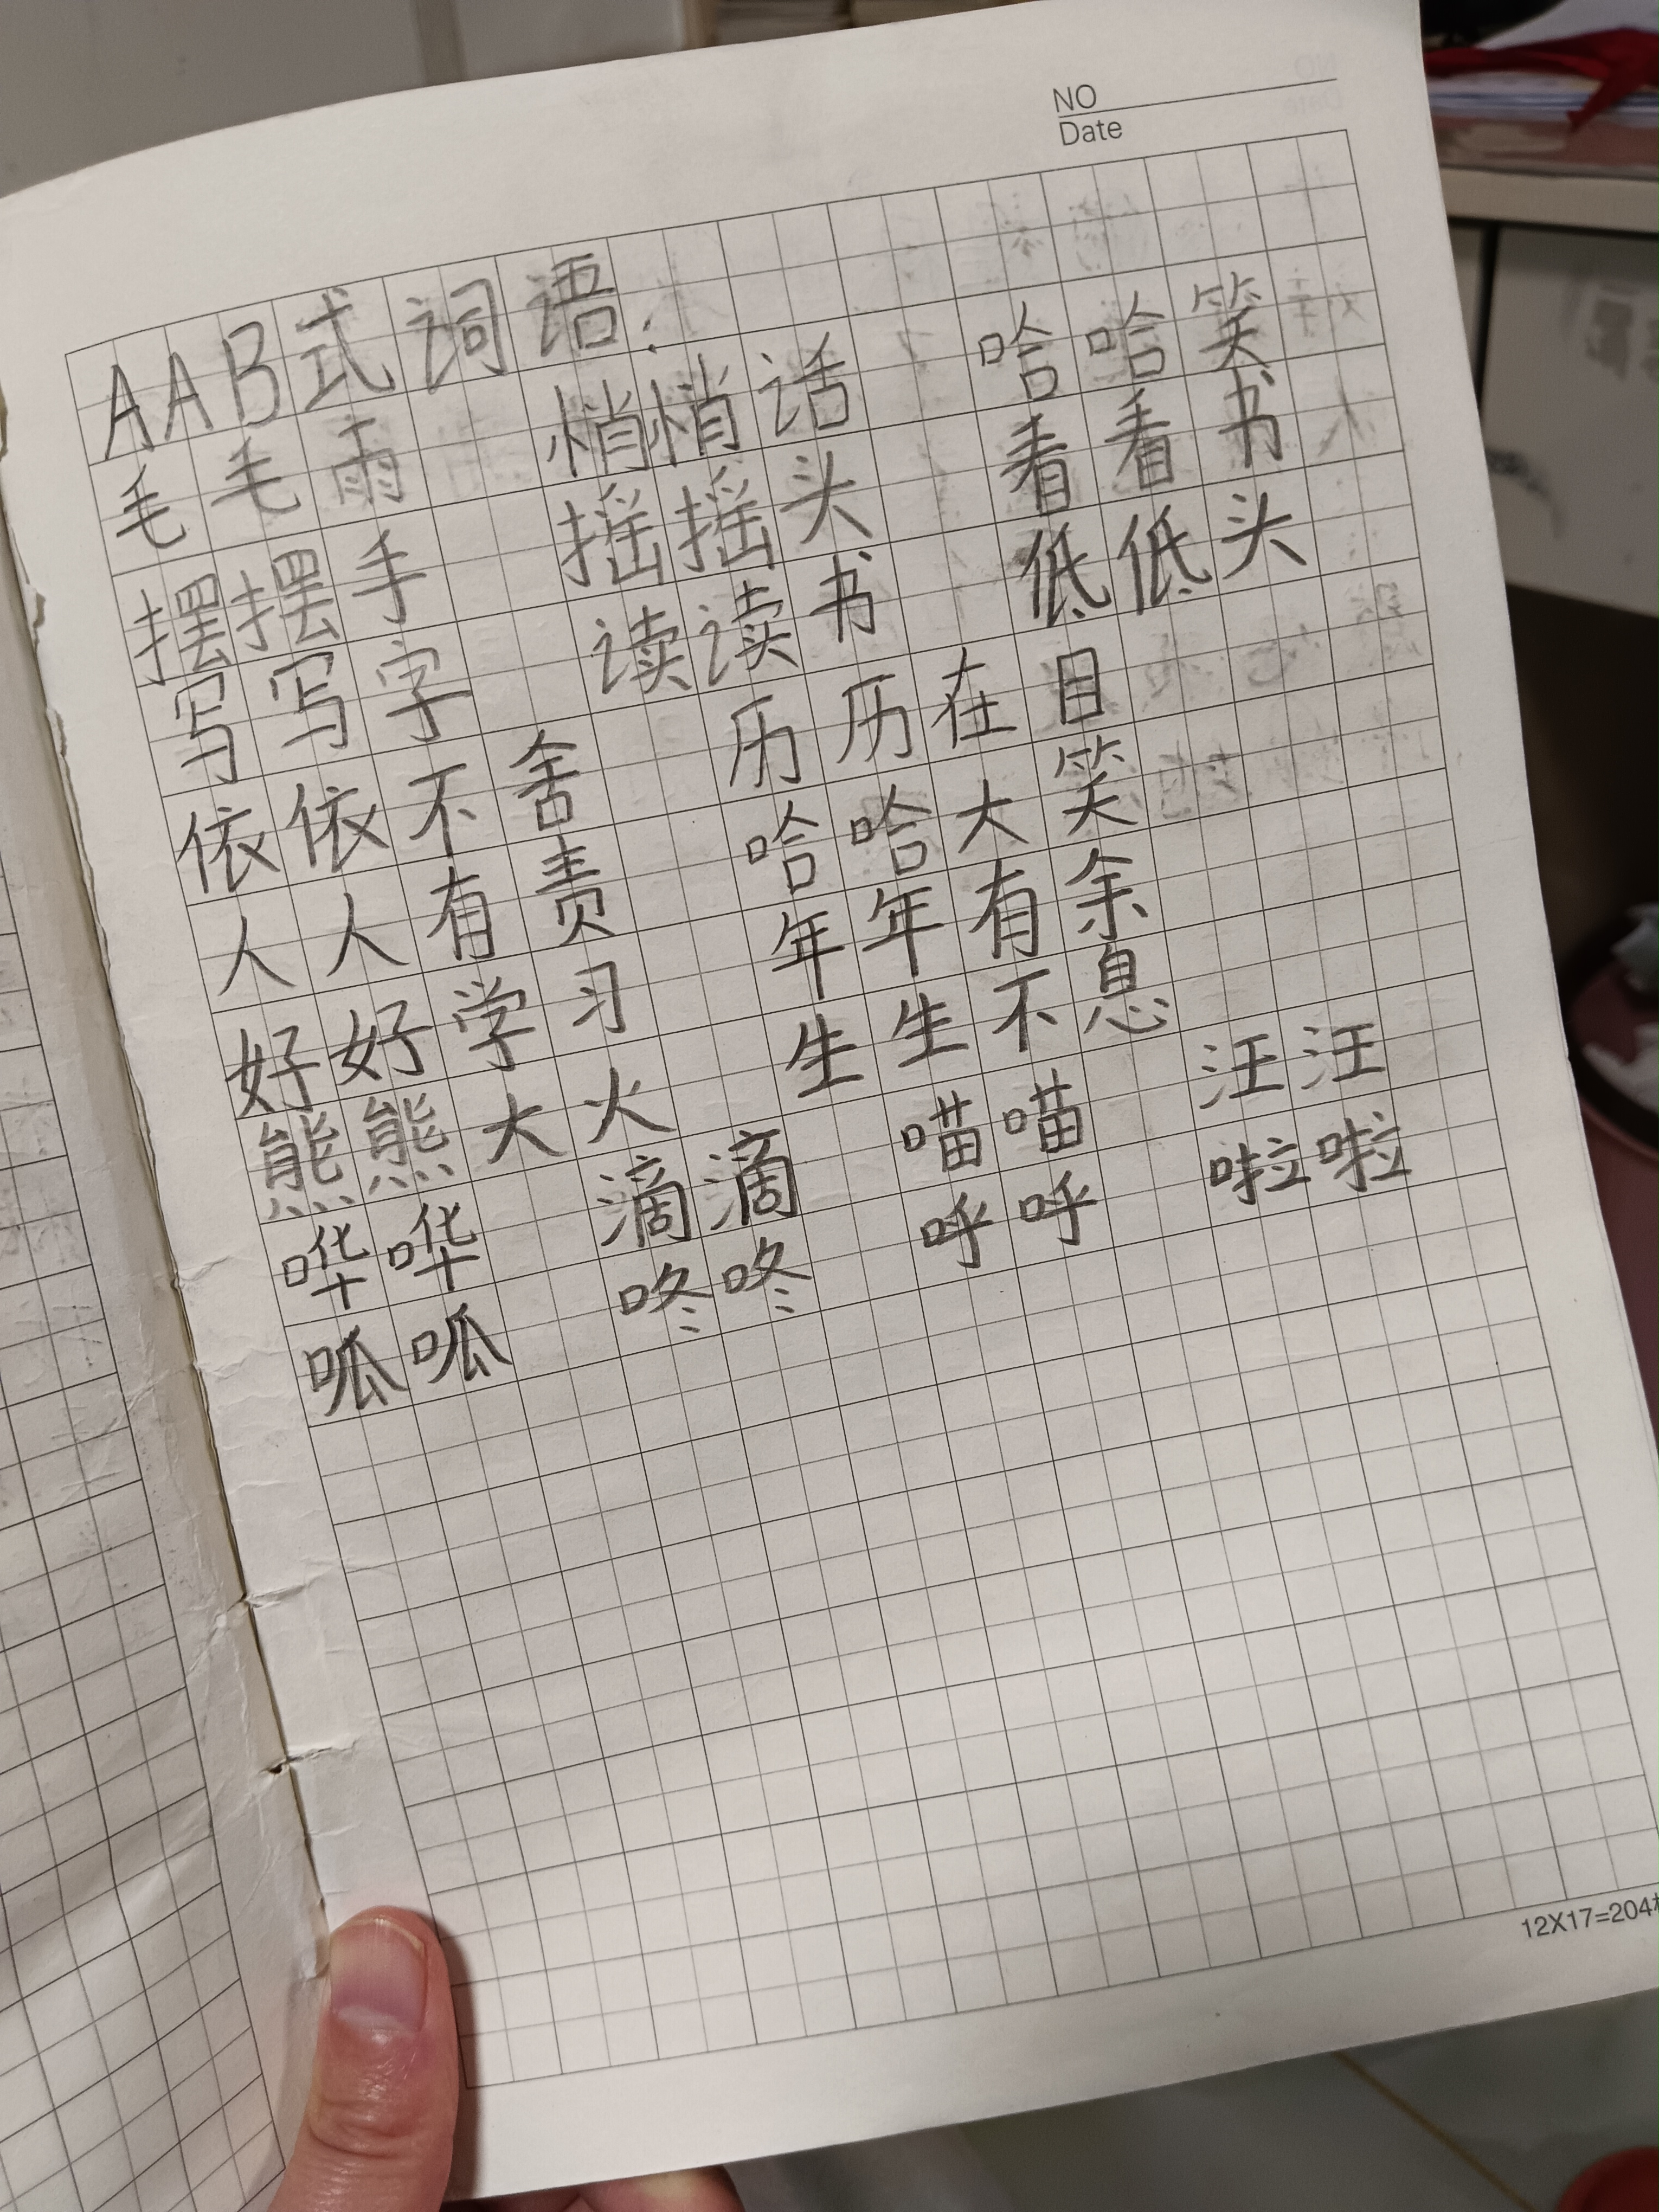 NO
Date
AAB式词语:
毛毛雨 悄悄话 哈哈笑
摆摆手 摇摇头 看看书
写写字 读读书 低低头
依依不舍 历历在目
人人有责 哈哈大笑
好好学习 年年有余
熊熊大火 生生不息
哗哗 滴滴 喵喵 汪汪
呱呱 咚咚 呼呼 啦啦
12X17=204